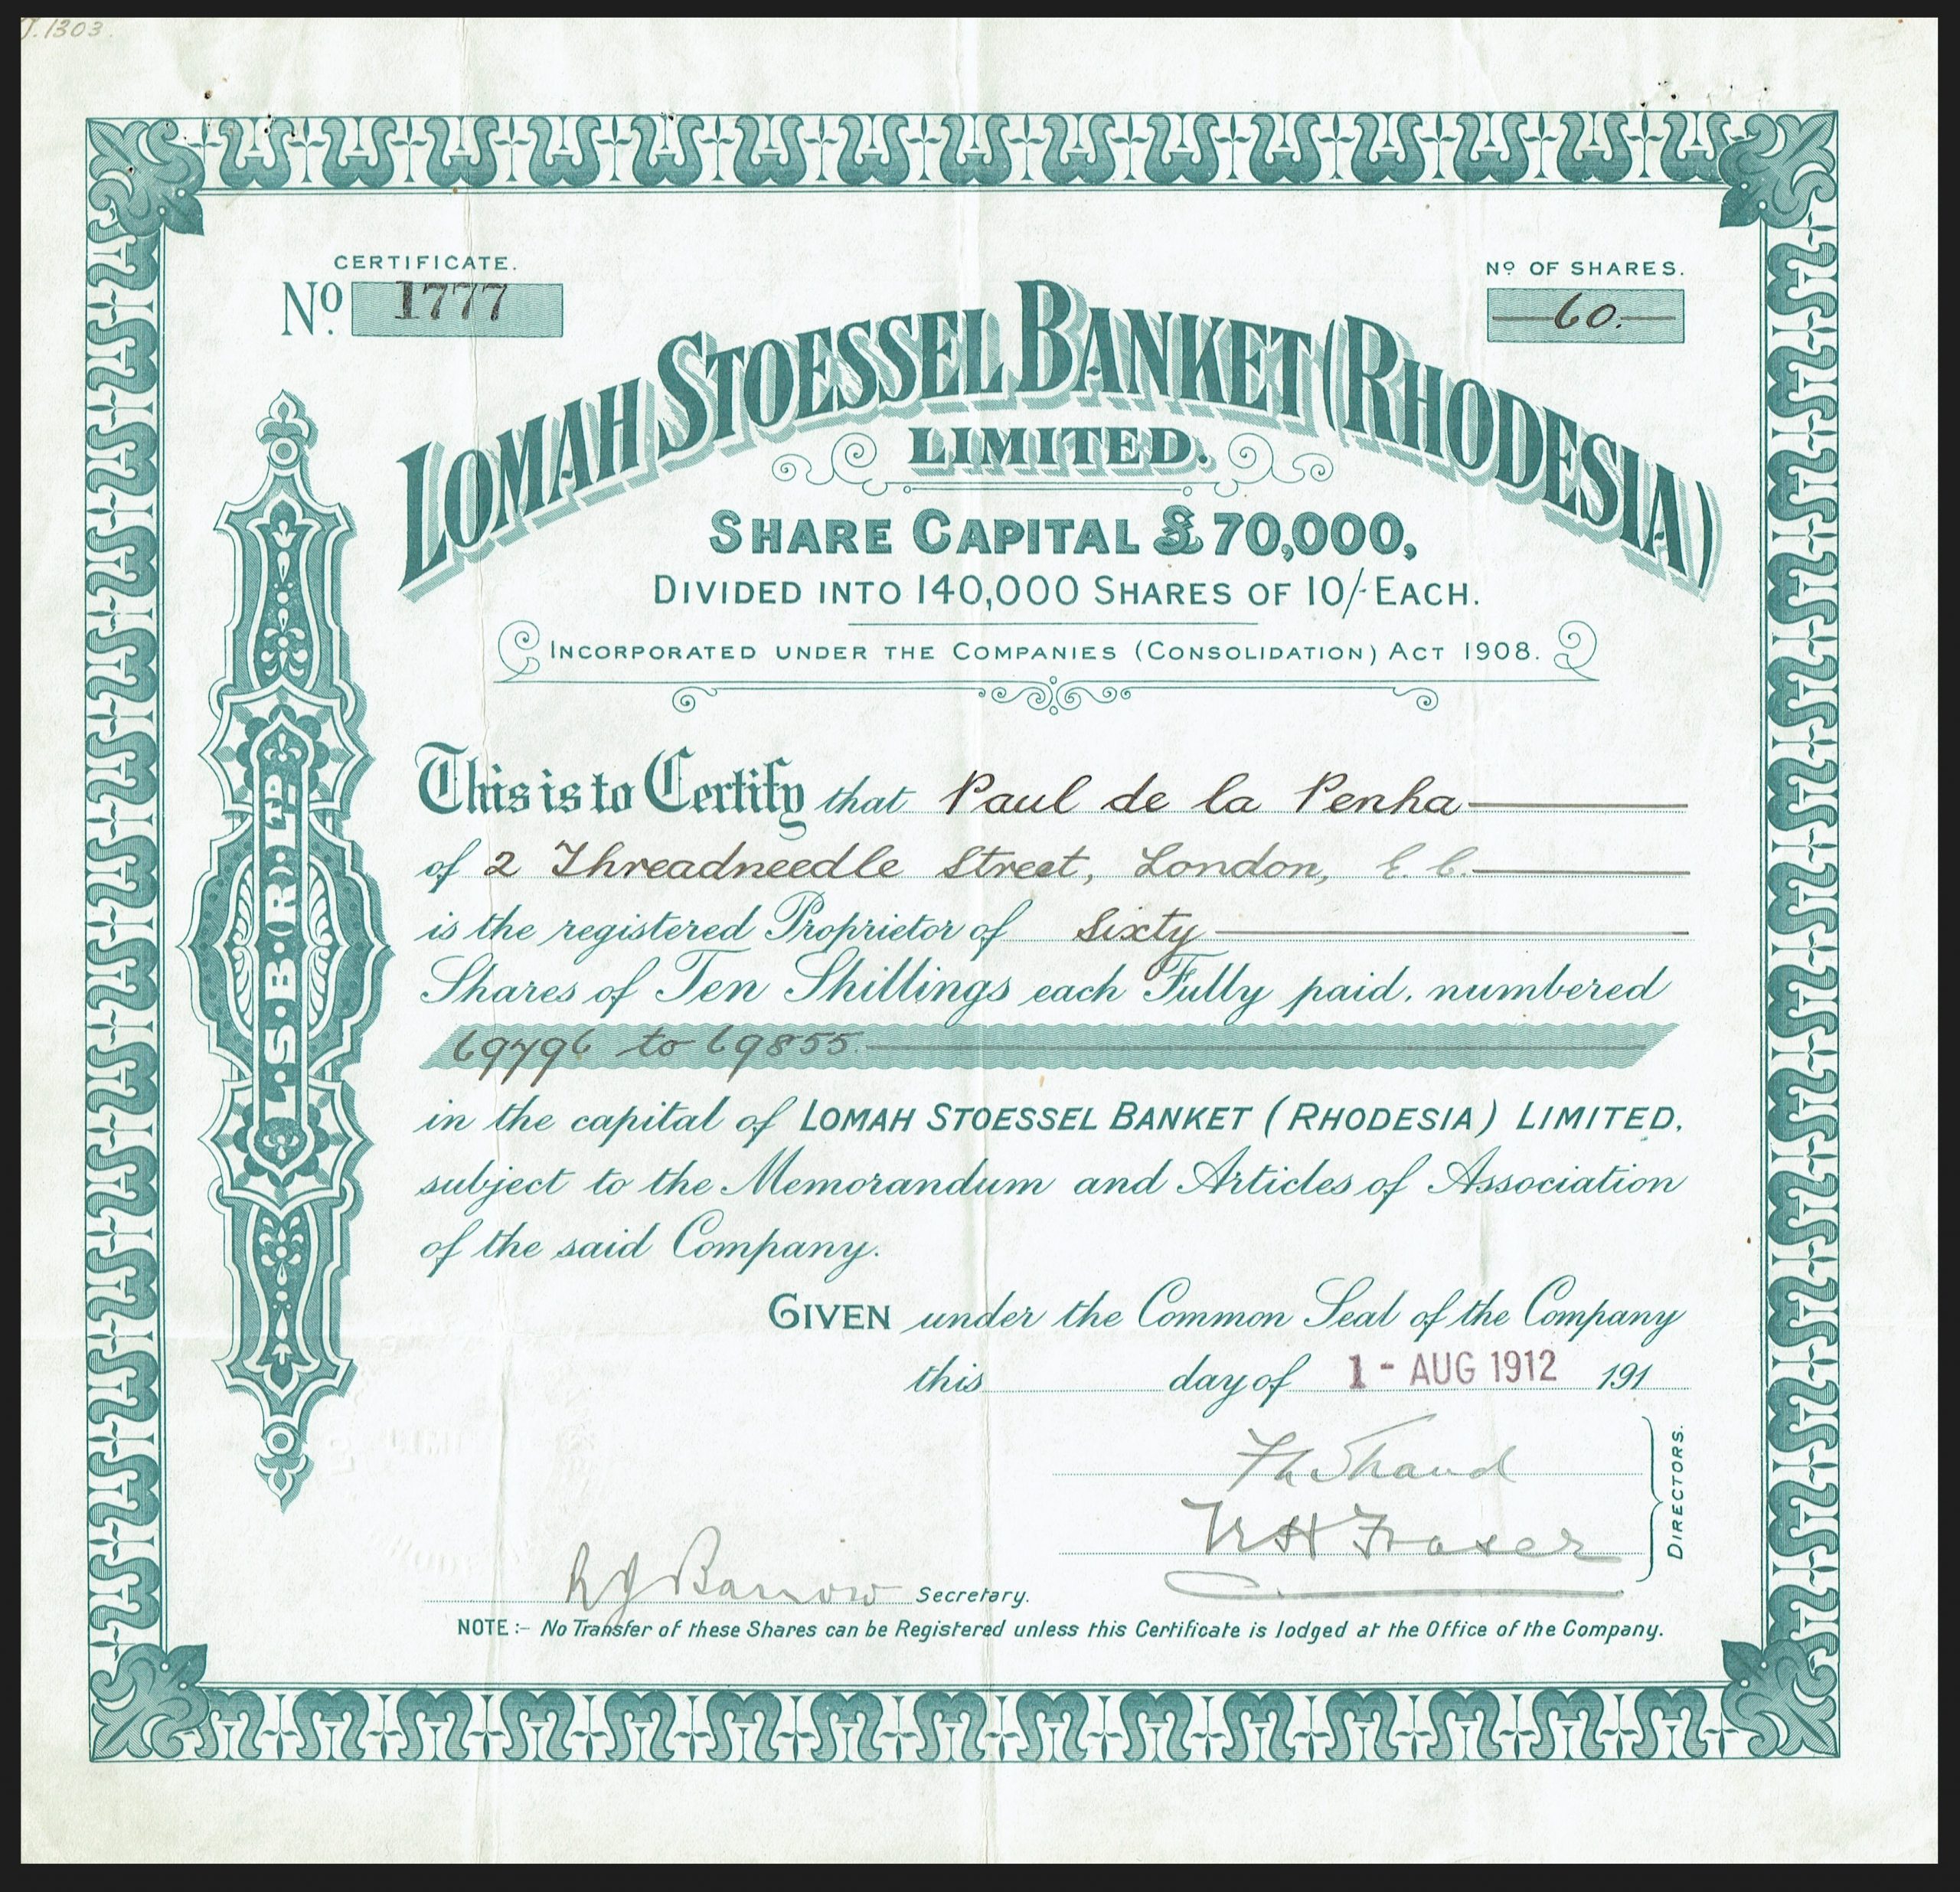 J.1303.
CERTIFICATE.
Nº 1777
Nº OF SHARES.
60.
LOMAH STOESSEL BANKET (RHODESIA)
LIMITED.
SHARE CAPITAL £70,000,
DIVIDED INTO 140,000 SHARES OF 10/- EACH.
INCORPORATED UNDER THE COMPANIES (CONSOLIDATION) ACT 1908.
L.S.B.(R).LTD
This is to Certify that Paul de la Penha
of 2 Threadneedle Street, London, E.C.
is the registered Proprietor of Sixty
Shares of Ten Shillings each Fully paid, numbered
69796 to 69855.
in the capital of LOMAH STOESSEL BANKET (RHODESIA) LIMITED,
subject to the Memorandum and Articles of Association
of the said Company.
GIVEN under the Common Seal of the Company
this day of 1 - AUG 1912 191
Shand
Fraser
DIRECTORS.
RJ Barrow Secretary.
NOTE :- No Transfer of these Shares can be Registered unless this Certificate is lodged at the Office of the Company.